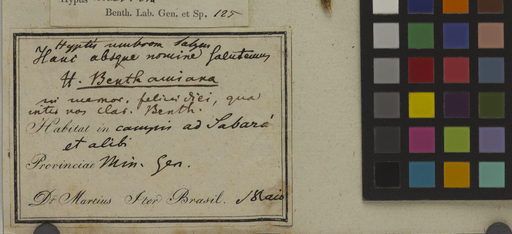 Hyptis
Benth. Lab. Gen. et Sp. 125
Hyptis umbrosa Salzm
Hanc absque nomine salutamus
H. Benthamiana
in memor. felicis diei, qua
inter nos clar. Benth.
Habitat in campis ad Sabará
et alibi
Provinciae Min. Gen.
Dr Martius Iter Brasil. Maio